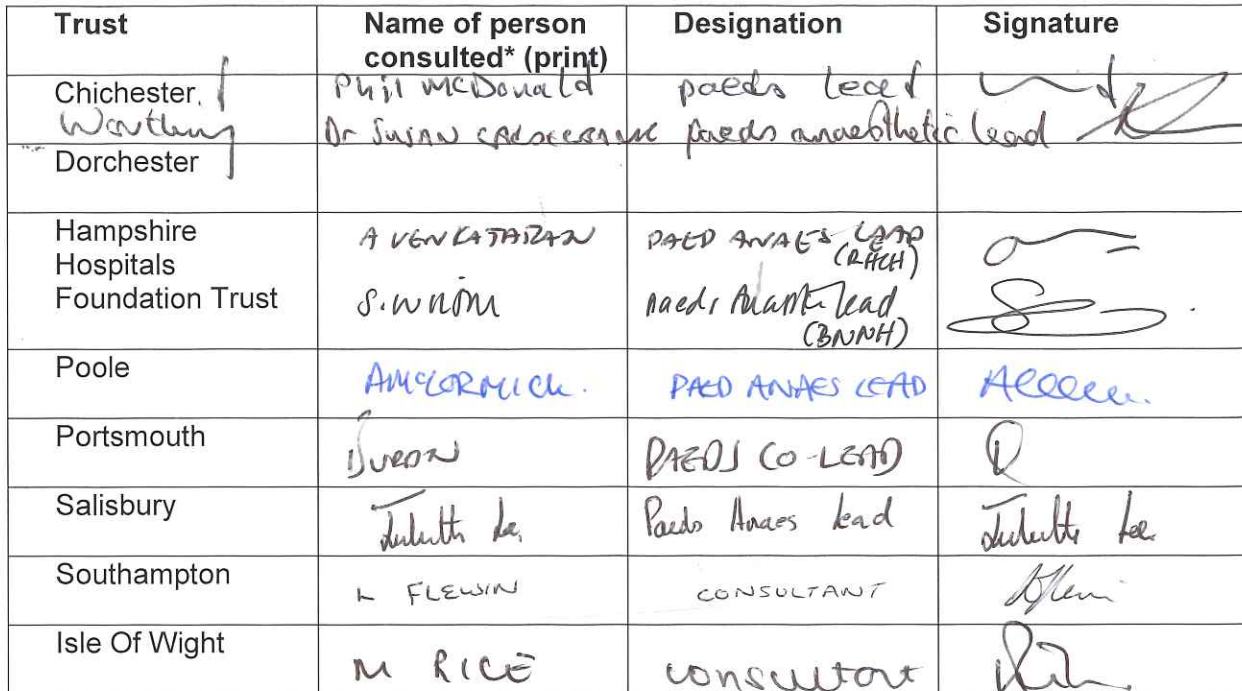 Trust Name of person consulted* (print) Designation Signature
Chichester, Phil McDonald paeds lead
Worthing Dr SUSAN CALDERBANK paeds anaesthetic lead
Dorchester
Hampshire Hospitals Foundation Trust A VENKATARAN PAED ANAES LEAD (RHCH)
S. paeds lead (BNNH)
Poole A MCCORMICK. PAED ANAES LEAD
Portsmouth PAEDS CO-LEAD
Salisbury Lee Paeds Anaes Lead Lee
Southampton L FLEWIN CONSULTANT
Isle Of Wight M RICE consultant